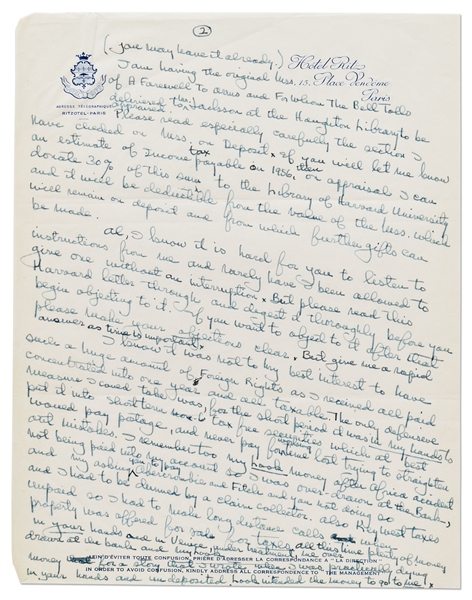 2
(you may have it already.)
Hôtel Ritz
15, Place Vendôme
Paris
ADRESSE TÉLÉGRAPHIQUE
RITZOTEL-PARIS
I am having the original Mss.
of A Farewell To Arms and For Whom The Bell Tolls
delivered to Jackson at the Houghton Library to be
appraised.
Please read especially carefully the section I
have checked on Mss. on Deposit x If you will let me know
an estimate of Income tax payable on 1956, then on appraisal I can
donate 30% of this sum to the Library of Harvard University
and it will be deductible from the value of the Mss. which
will remain on deposit and from which further gifts can
be made.
Al, I know it is hard for you to listen to
instructions from me and rarely have I been allowed to
give one without an interruption x But please read this
Harvard letter through and digest it thoroughly before you
begin objecting to it. If you want to object to it after that
please make your objections clear x But give me a rapid
answer as time is important.
I know it was not to my best interest to have
such a huge amount of Foreign Rights as I received all paid
concentrated into one year and all taxable. The only defensive
measure I could take was, for the short period it was in my hands to
put it into short term tax free securities which at best
would pay postage, and never pay for time lost trying to straighten
out mistakes. I remember too my book money after Africa accident
not being paid into my account so I was over-drawn at the Bank,
and my asking you to pay Abercrombie and Fitch and you not doing so
and I had to be dunned by a claim collector. Also Key West taxes
unpaid so I had to make long distance calls
property was offered for sale for taxes all this time plenty of money
in your hands and in Venice, under treatment, me over-
drawn at the bank and my
AFIN D'ÉVITER TOUTE CONFUSION, PRIÈRE D'ADRESSER LA CORRESPONDANCE A "LA DIRECTION"
money for a story that I wrote when I was practically dying
IN ORDER TO AVOID CONFUSION, KINDLY ADDRESS ALL CORRESPONDENCE TO "THE MANAGEMENT"
in your hands and un-deposited intended the money to go to me